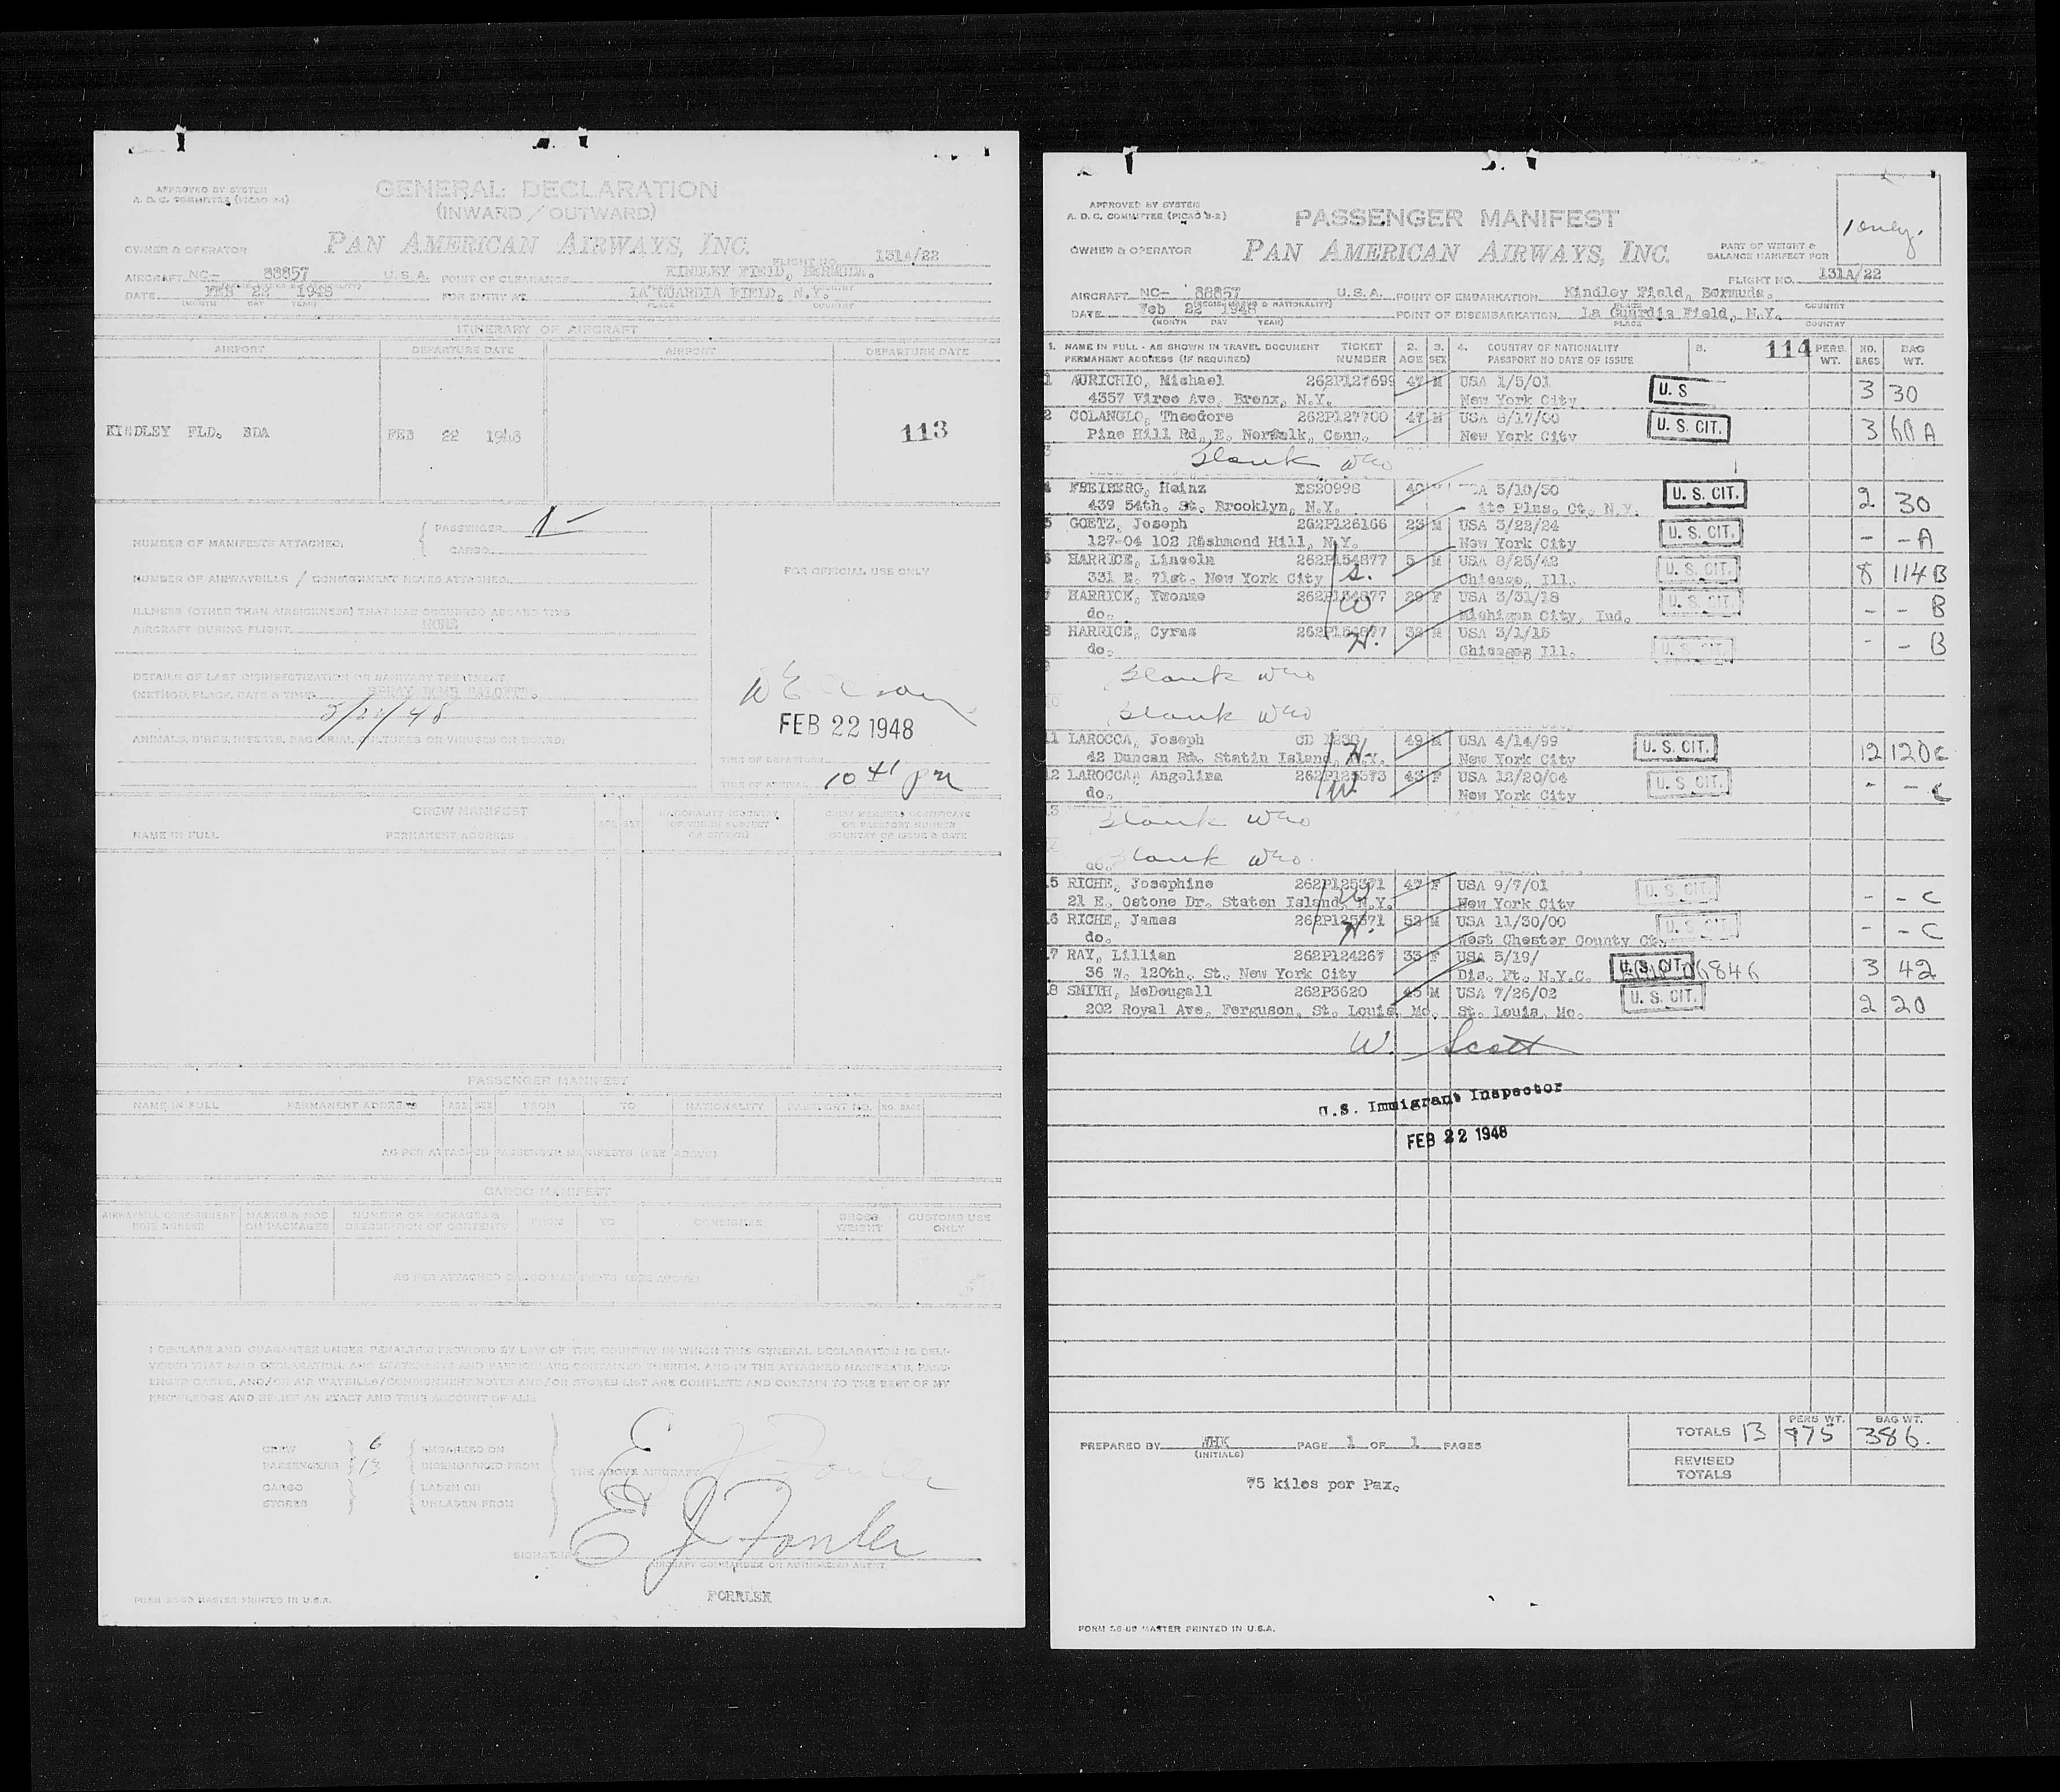 APPROVED BY SYSTEM
GENERAL DECLARATION
(INWARD / OUTWARD)
OWNER & OPERATOR PAN AMERICAN AIRWAYS, INC. FLIGHT NO. 131A/22
AIRCRAFT NC- 88857 U.S.A. POINT OF CLEARANCE KINDLEY FIELD, BERMUDA.
DATE FEB 22 1948 FOR ENTRY AT LA GUARDIA FIELD, N.Y.
(MONTH DAY YEAR) COUNTRY
ITINERARY OF AIRCRAFT
AIRPORT DEPARTURE DATE AIRPORT DEPARTURE DATE
KINDLEY FLD. BDA FEB 22 1948 113
NUMBER OF MANIFESTS ATTACHED: PASSENGER 1
CARGO
NUMBER OF AIRWAYBILLS / CONSIGNMENT NOTES ATTACHED
FOR OFFICIAL USE ONLY
ILLNESS (OTHER THAN AIRSICKNESS) THAT HAS OCCURRED ABOARD THIS
AIRCRAFT DURING FLIGHT NONE
DETAILS OF LAST DISINSECTIZATION OR SANITARY TREATMENT
(METHOD, PLACE, DATE & TIME)
FEB 22 1948
ANIMALS, BIRDS, INSECTS, BACTERIAL CULTURES OR VIRUSES ON BOARD:
TIME OF DEPARTURE
TIME OF ARRIVAL 10 41 pm
CREW MANIFEST
NAME IN FULL PERMANENT ADDRESS AGE SEX NATIONALITY (COUNTRY OF WHICH SUBJECT OR CITIZEN) CREW MEMBERS CERTIFICATE OR PASSPORT NUMBER COUNTRY OF ISSUE & DATE
PASSENGER MANIFEST
NAME IN FULL PERMANENT ADDRESS AGE SEX FROM TO NATIONALITY PASSPORT NO. NO. BAGS
AS PER ATTACHED PASSENGER MANIFESTS (SEE ABOVE)
CARGO MANIFEST
AIRWAYBILL CONSIGNMENT NOTE NUMBER MARKS & NOS ON PACKAGES NUMBER OF PACKAGES & DESCRIPTION OF CONTENTS FROM TO CONSIGNEE GROSS WEIGHT CUSTOMS USE ONLY
AS PER ATTACHED CARGO MANIFESTS (SEE ABOVE)
I DECLARE AND GUARANTEE UNDER PENALTIES PROVIDED BY LAW OF THE COUNTRY IN WHICH THIS GENERAL DECLARATION IS DELI-
VERED THAT SAID DECLARATION, AND STATEMENTS AND PARTICULARS CONTAINED THEREIN, AND IN THE ATTACHED MANIFESTS, PASS-
ENGER CARDS, AND/OR AIR WAYBILLS/CONSIGNMENT NOTES AND/OR STORES LIST ARE COMPLETE AND CONTAIN TO THE BEST OF MY
KNOWLEDGE AND BELIEF AN EXACT AND TRUE ACCOUNT OF ALL:
CREW 6 EMBARKED ON
PASSENGERS 13 DISEMBARKED FROM THE ABOVE AIRCRAFT
CARGO LADEN ON
STORES UNLADEN FROM
SIGNATURE E J Fowler
AIRCRAFT COMMANDER OR AUTHORIZED AGENT
MASTER PRINTED IN U.S.A.
APPROVED BY SYSTEM
A. D. C. COMMITTEE (PICAO B-2)
PASSENGER MANIFEST
1 only.
OWNER & OPERATOR PAN AMERICAN AIRWAYS, INC. PART OF WEIGHT & BALANCE MANIFEST FOR
FLIGHT NO. 131A/22
AIRCRAFT NC- 88857 U.S.A. POINT OF EMBARKATION Kindley Field, Bermuda.
DATE Feb 22 1948 POINT OF DISEMBARKATION La Guardia Field, N.Y.
(MONTH DAY YEAR) PLACE COUNTRY
1. NAME IN FULL - AS SHOWN IN TRAVEL DOCUMENT TICKET 2. 3. 4. COUNTRY OF NATIONALITY 5. 114 PERS. NO. BAG
PERMANENT ADDRESS (IF REQUIRED) NUMBER AGE SEX PASSPORT NO DATE OF ISSUE WT. BAGS WT.
1 AURICHIO, Michael 262P127699 47 M USA 1/5/01 U. S 3 30
4357 Viree Ave, Bronx, N.Y. New York City
2 COLANGLO, Theodore 262P127700 47 M USA 8/17/00 U. S. CIT. 3 60 A
Pine Hill Rd, E. Norwalk, Conn. New York City
3 Blank
4 FREIBERG, Heinz ES20998 40 5/10/30 U. S. CIT. 2 30
439 54th. St. Brooklyn, N.Y. ite Plns. Ct. N.Y.
5 GOETZ, Joseph 262P126166 23 M USA 3/22/24 U. S. CIT. - - A
127-04 102 Rishmond Hill, N.Y. New York City
6 HARRICE, Lincoln 262P154877 5 M USA 8/25/42 U. S. CIT. 8 114 B
331 E. 71st. New York City S. Chicago, Ill.
7 HARRICE, Yvonne 262P154877 29 F USA 3/31/18 U. S. CIT. - - B
do. W Michigan City, Ind.
8 HARRICE, Cyrus 262P154877 32 M USA 3/1/15 U. S. CIT. - - B
do. H. Chicago, Ill.
Blank
Blank
11 LAROCCA, Joseph CD 1230 49 M USA 4/14/99 U. S. CIT. 12 120 C
42 Duncan Rd. Statin Island, N.Y. H. New York City
12 LAROCCA, Angelina 262P125373 43 F USA 12/20/04 U. S. CIT. - - C
do. W. New York City
Blank
do. Blank
5 RICHE, Josephine 262P125371 47 F USA 9/7/01 U. S. CIT. - - C
21 E. Ostone Dr. Staten Island, N.Y. W New York City
6 RICHE, James 262P125371 52 M USA 11/30/00 U. S. CIT. - - C
do. H. West Chester County Ct.
7 RAY, Lillian 262P124267 33 F USA 5/19/ U. S. CIT. 3 42
36 W. 120th. St. New York City Dis. Ft. N.Y.C. 6846
8 SMITH, McDougall 262P3620 45 M USA 7/26/02 U. S. CIT. 2 20
202 Royal Ave, Ferguson, St. Louis, Mo. St. Louis, Mo.
W. Scott
U.S. Immigrant Inspector
FEB 22 1948
PERS WT. BAG WT.
TOTALS 13 975 386.
PREPARED BY WHK PAGE 1 OF 1 PAGES
(INITIALS)
REVISED TOTALS
75 kilos per Pax.
MASTER PRINTED IN U.S.A.